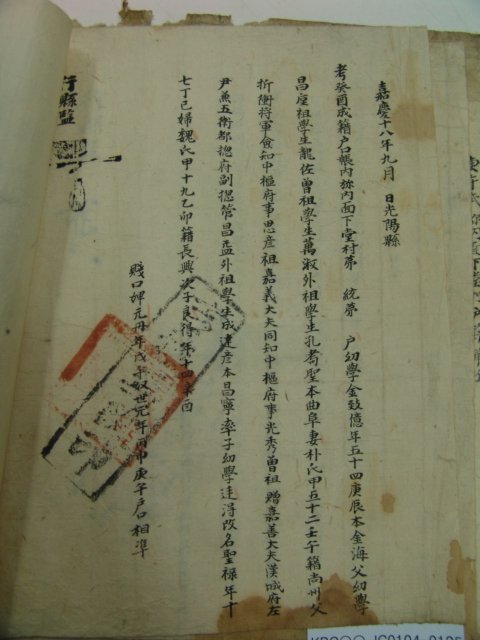 嘉慶十八年九月 日光陽縣
考癸酉成籍户口帳內 內面下堂村第 統第 户幼學金致億年五十四庚辰本金海父幼學
昌 祖學生龍佐曾祖學生萬淑外祖學生孔 聖本曲阜妻朴氏甲五十二壬午籍尚州父
折衝將軍僉知中樞府事思彦祖嘉義大夫同知中樞府事光秀曾祖贈嘉善大夫漢城府左
尹兼五衛都摠府副摠管昌 外祖學生成達彦本昌寧率子幼學 得改名聖祿年十
七丁巳婦魏氏甲十九乙卯籍長興次子良得年十四
賤口婢元丹年戊午奴世 年 甲庚午户口相準
行縣監